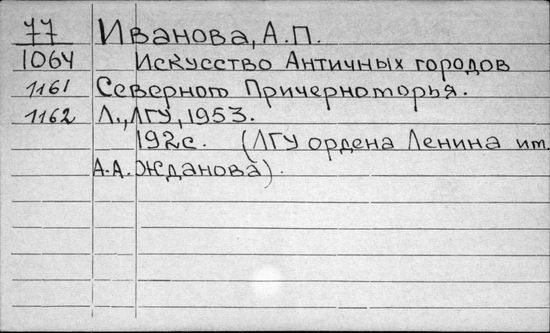 77 Иванова, А.П.
1064 Искусство Античных городов
1161 Северного Причерноморья.
1162 Л., ЛГУ, 1953.
192с. (ЛГУ ордена Ленина им.
А.А. Жданова).